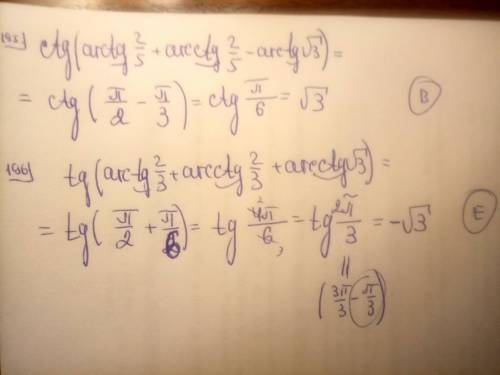 195) ctg(arctg 2/5 + arcctg 2/5 - arctg√3) =
= ctg(π/2 - π/3) = ctg π/6 = √3 B
196) tg(arctg 2/3 + arcctg 2/3 + arcctg√3) =
= tg(π/2 + π/6) = tg 4π/6 = tg 2π/3 = -√3 E
(3π/3 - π/3)